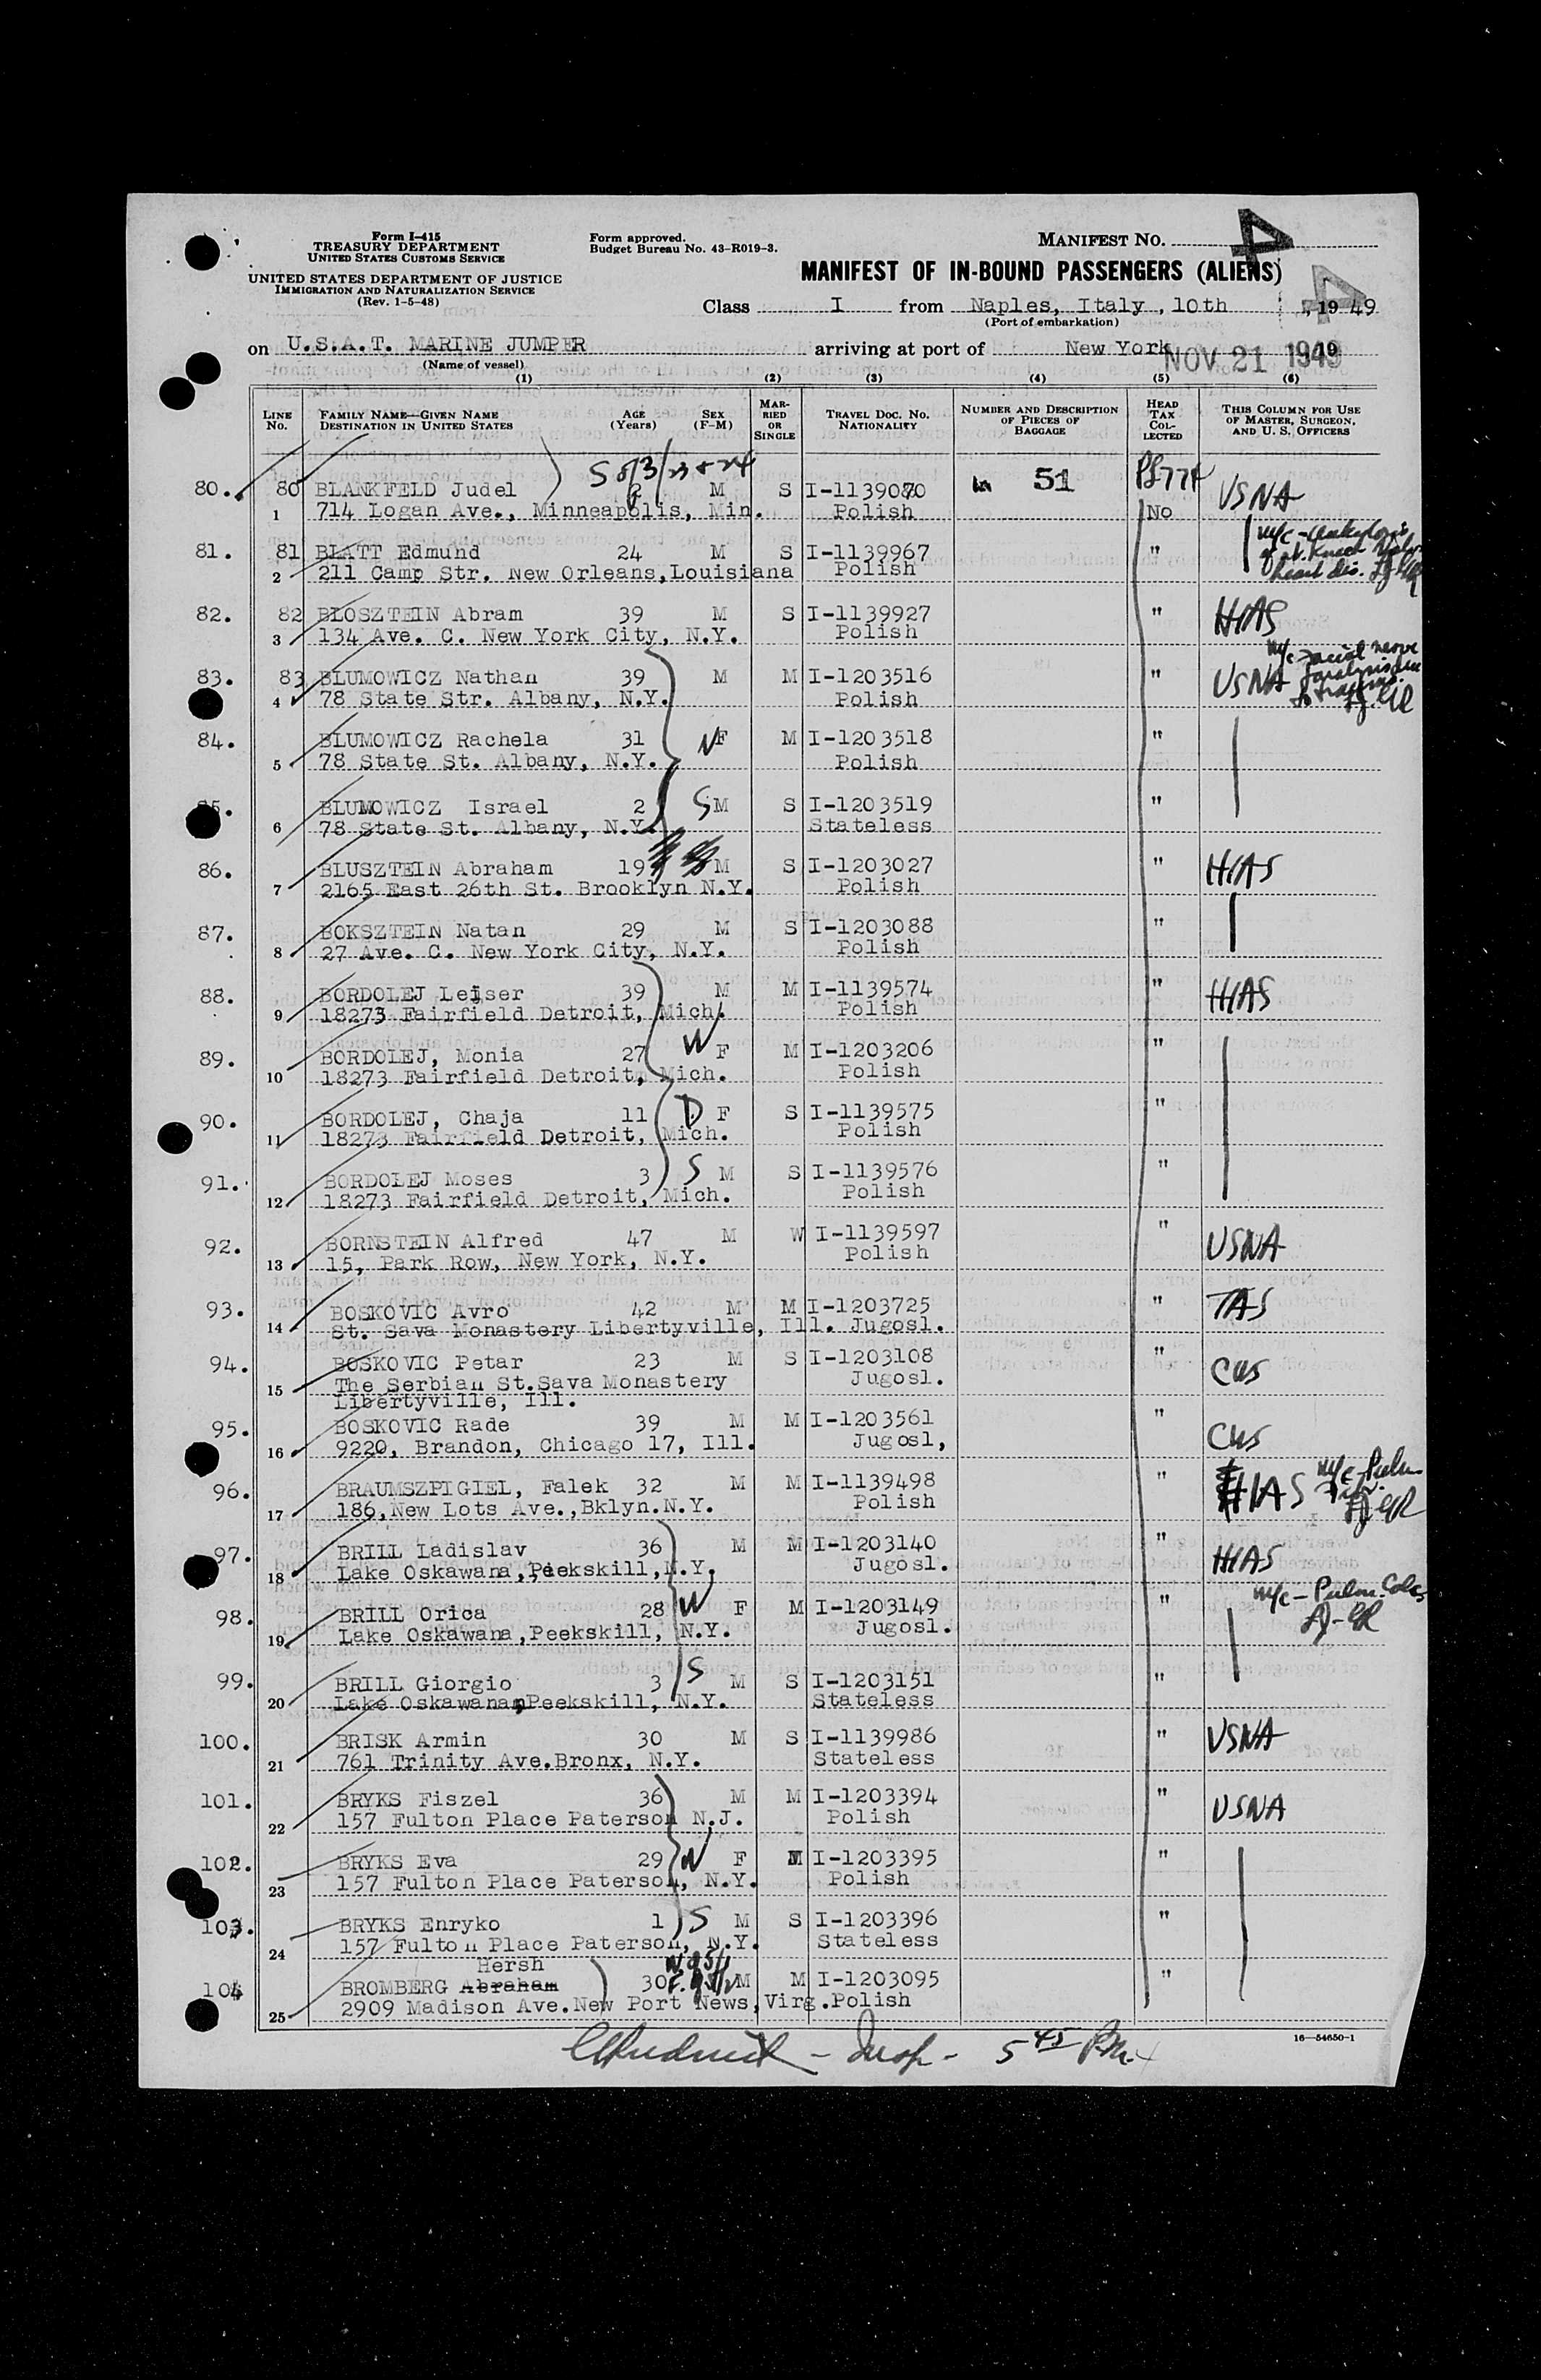 Form I-415
TREASURY DEPARTMENT
UNITED STATES CUSTOMS SERVICE
UNITED STATES DEPARTMENT OF JUSTICE
IMMIGRATION AND NATURALIZATION SERVICE
(Rev. 1-5-48)
Form approved.
Budget Bureau No. 43-R019-3.
MANIFEST NO. 4
4
MANIFEST OF IN-BOUND PASSENGERS (ALIENS)
Class I from Naples, Italy, 10th , 1949
(Port of embarkation)
on U.S.A.T. MARINE JUMPER arriving at port of New York NOV 21 1949
(Name of vessel)
(1) (2) (3) (4) (5) (6)
LINE No. FAMILY NAME—GIVEN NAME DESTINATION IN UNITED STATES AGE (Years) SEX (F-M) MARRIED OR SINGLE TRAVEL DOC. NO. NATIONALITY NUMBER AND DESCRIPTION OF PIECES OF BAGGAGE HEAD TAX COLLECTED THIS COLUMN FOR USE OF MASTER, SURGEON, AND U. S. OFFICERS
80. 80 BLANKFELD Judel 2 M S I-1139080 51 USNA
1 714 Logan Ave., Minneapolis, Min. Polish No
81. 81 BLATT Edmund 24 M S I-1139967 "
2 211 Camp Str. New Orleans,Louisiana Polish
82. 82 BLOSZTEIN Abram 39 M S I-1139927 " HIAS
3 134 Ave. C. New York City, N.Y. Polish
83. 83 BLUMOWICZ Nathan 39 M M I-1203516 " USNA
4 78 State Str. Albany, N.Y. Polish
84. BLUMOWICZ Rachela 31 W F M I-1203518 "
5 78 State St. Albany, N.Y. Polish
85. BLUMOWICZ Israel 2 S M S I-1203519 "
6 78 State St. Albany, N.Y. Stateless
86. BLUSZTEIN Abraham 19 M S I-1203027 " HIAS
7 2165 East 26th St. Brooklyn N.Y. Polish
87. BOKSZTEIN Natan 29 M S I-1203088 "
8 27 Ave. C. New York City, N.Y. Polish
88. BORDOLEJ Leiser 39 M M I-1139574 " HIAS
9 18273 Fairfield Detroit, Mich. Polish
89. BORDOLEJ, Monia 27 W F M I-1203206 "
10 18273 Fairfield Detroit, Mich. Polish
90. BORDOLEJ, Chaja 11 D F S I-1139575 "
11 18273 Fairfield Detroit, Mich. Polish
91. BORDOLEJ Moses 3 S M S I-1139576 "
12 18273 Fairfield Detroit, Mich. Polish
92. BORNSTEIN Alfred 47 M W I-1139597 " USNA
13 15, Park Row, New York, N.Y. Polish
93. BOSKOVIC Avro 42 M M I-1203725 " TAS
14 St. Sava Monastery Libertyville, Ill. Jugosl.
94. BOSKOVIC Petar 23 M S I-1203108 " CWS
15 The Serbian St.Sava Monastery Jugosl.
Libertyville, Ill.
95. BOSKOVIC Rade 39 M M I-1203561 " CWS
16 9220, Brandon, Chicago 17, Ill. Jugosl,
96. BRAUMSZPIGIEL, Falek 32 M M I-1139498 " HIAS
17 186,New Lots Ave.,Bklyn.N.Y. Polish
97. BRILL Ladislav 36 M M I-1203140 " HIAS
18 Lake Oskawana,Peekskill,N.Y. Jugosl.
98. BRILL Orica 28 W F M I-1203149 "
19 Lake Oskawana,Peekskill, N.Y. Jugosl.
99. BRILL Giorgio 3 S M S I-1203151 "
20 Lake Oskawana,Peekskill, N.Y. Stateless
100. BRISK Armin 30 M S I-1139986 " USNA
21 761 Trinity Ave.Bronx, N.Y. Stateless
101. BRYKS Fiszel 36 M M I-1203394 " USNA
22 157 Fulton Place Paterson N.J. Polish
102. BRYKS Eva 29 W F M I-1203395 "
23 157 Fulton Place Paterson, N.Y. Polish
103. BRYKS Enryko 1 S M S I-1203396 "
24 157 Fulton Place Paterson, N.Y. Stateless
Hersh
104 BROMBERG Abraham 30 M M I-1203095 "
25 2909 Madison Ave.New Port News,Virg.Polish
- Insp - 5 45 P.M.
16—54650-1